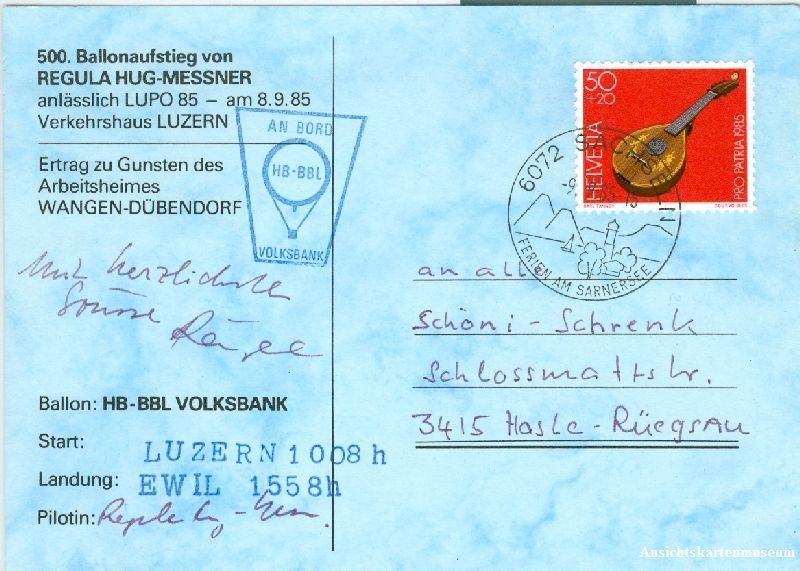 500. Ballonaufstieg von
REGULA HUG-MESSNER
anlässlich LUPO 85 – am 8.9.85
Verkehrshaus LUZERN
Ertrag zu Gunsten des
Arbeitsheimes
WANGEN-DÜBENDORF
AN BORD
HB-BBL
VOLKSBANK
Mit herzlichsten
Grüsse
Ballon: HB-BBL VOLKSBANK
Start: LUZERN 1008 h
Landung: EWIL 1558h
Pilotin:
50
+20
HELVETIA
PRO PATRIA 1985
6072 SACHSELN
FERIEN AM SARNERSEE
an alle
Schöni - Schrenk
Schlossmattstr.
3415 Hasle-Rüegsau
Ansichtskartenmuseum